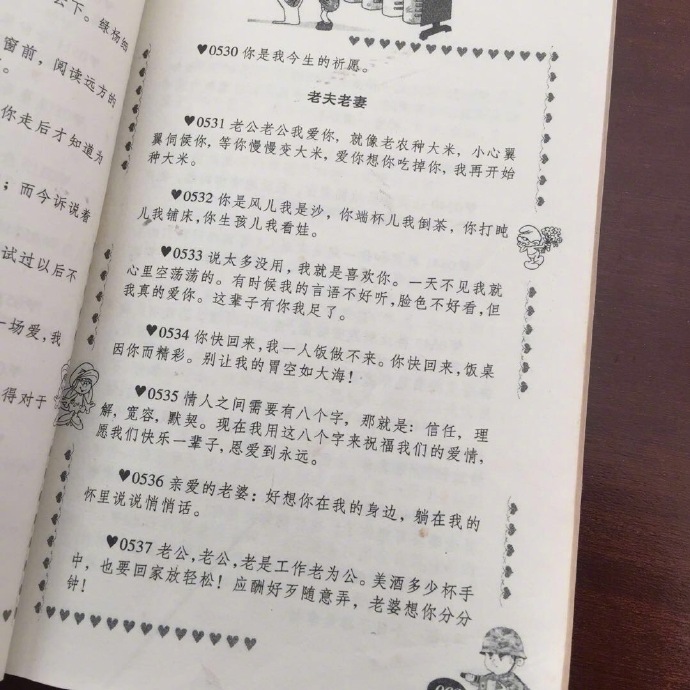 天下。绿杨烟
窗前，阅读远方的
你走后才知道为
；而今诉说着
试过以后不
一场爱，我
得对于
♥0530 你是我今生的祈愿。
老夫老妻
♥0531 老公老公我爱你，就像老农种大米，小心翼
翼伺候你，等你慢慢变大米，爱你想你吃掉你，我再开始
种大米。
♥0532 你是风儿我是沙，你端杯儿我倒茶，你打盹
儿我铺床，你生孩儿我看娃。
♥0533 说太多没用，我就是喜欢你。一天不见我就
心里空荡荡的。有时候我的言语不好听，脸色不好看，但
我真的爱你。这辈子有你我足了。
♥0534 你快回来，我一人饭做不来。你快回来，饭桌
因你而精彩。别让我的胃空如大海！
♥0535 情人之间需要有八个字，那就是：信任，理
解，宽容，默契。现在我用这八个字来祝福我们的爱情，
愿我们快乐一辈子，恩爱到永远。
♥0536 亲爱的老婆：好想你在我的身边，躺在我的
怀里说说悄悄话。
♥0537 老公，老公，老是工作老为公。美酒多少杯手
中，也要回家放轻松！应酬好歹随意弄，老婆想你分分
钟！